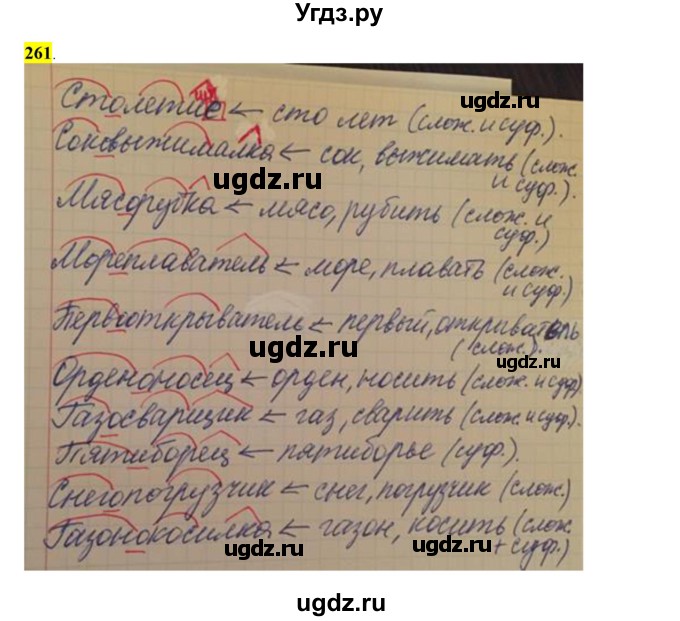 Угдз.ру
261.
Столетие ← сто лет (слож. и суф.).
Соковыжималка ← сок, выжимать (слож. и суф.).
Мясорубка ← мясо, рубить (слож. и суф.)
Мореплаватель ← море, плавать (слож. и суф.)
Первооткрыватель ← первый, открыватель (слож.).
Орденоносец ← орден, носить (слож. и суф)
Газосварщик ← газ, сварить (слож. и суф.).
Пятиборец ← пятиборье (суф.).
Снегопогрузчик ← снег, погрузчик (слож.)
Газонокосилка ← газон, косить (слож. + суф.)
ugdz.ru
ugdz.ru
ugdz.ru
ugdz.ru
ugdz.ru
ugdz.ru
ugdz.ru
ugdz.ru
ugdz.ru
ugdz.ru